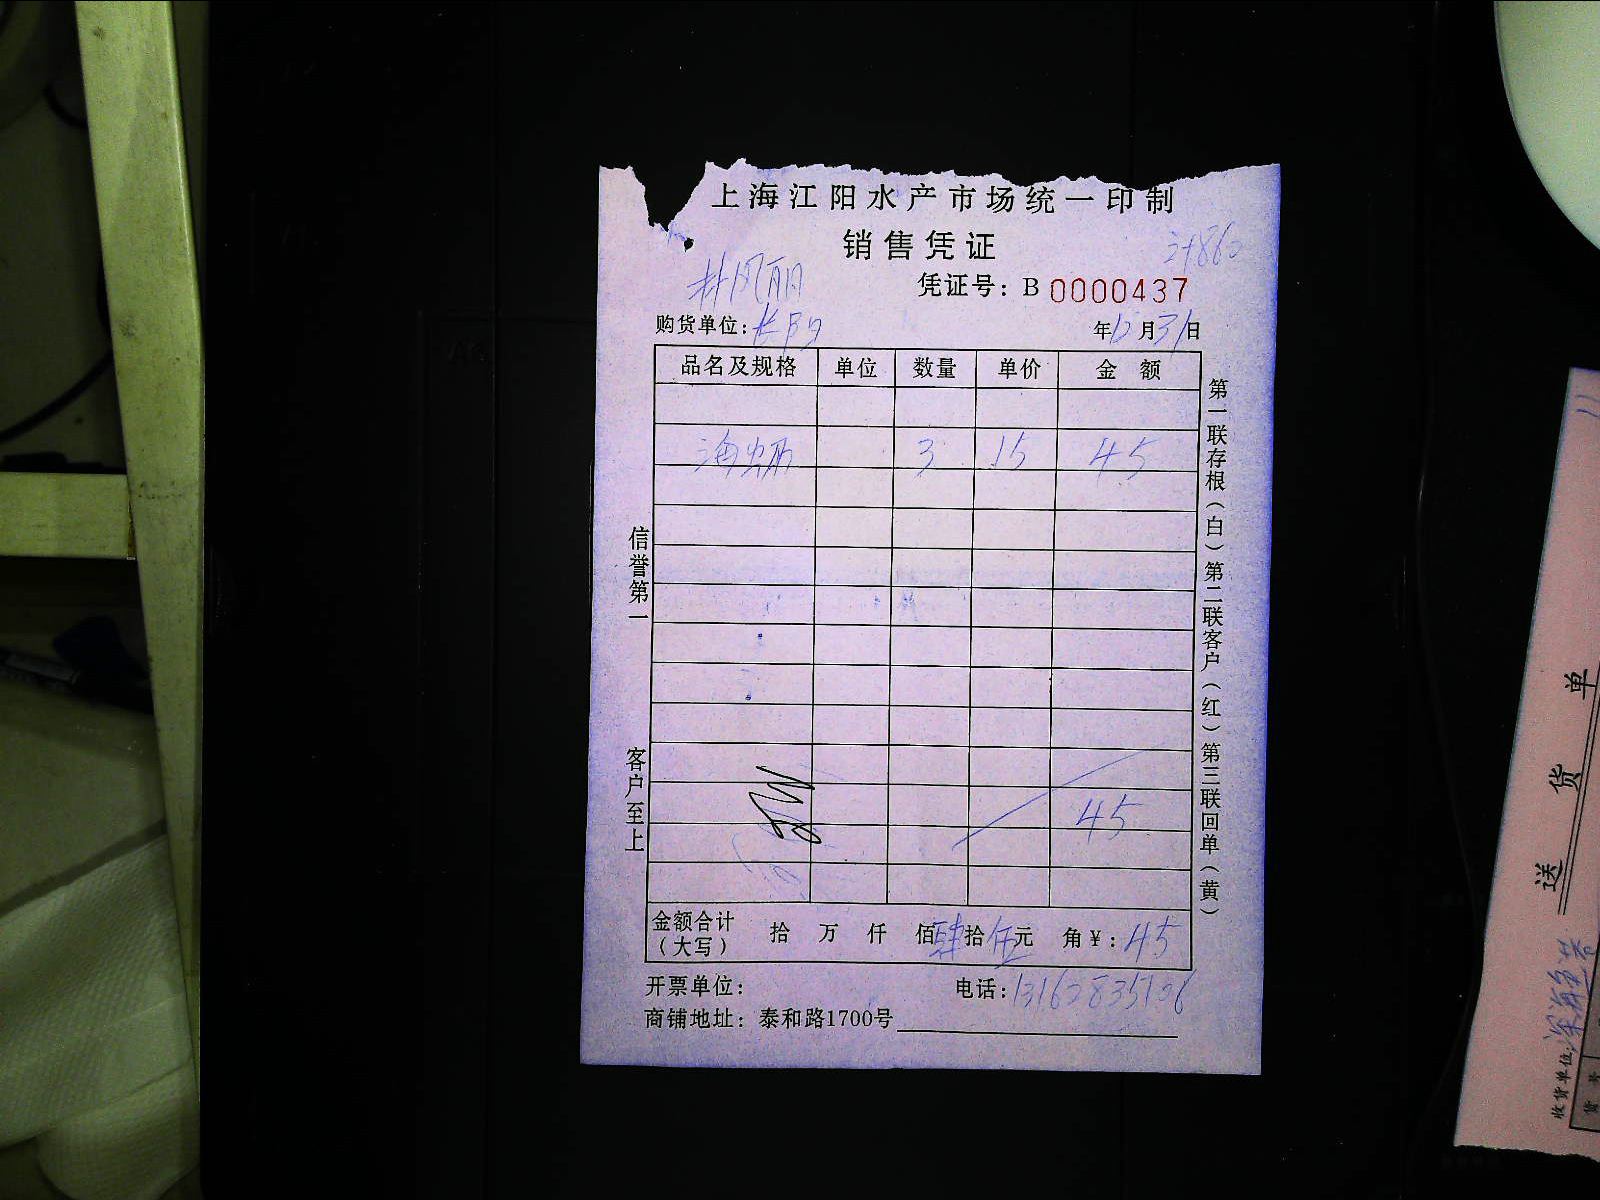 上海江阳水产市场统一印制
销售凭证
凭证号：B 0000437
林凤丽
购货单位：长阳
年12月31日
品名及规格 单位 数量 单价 金 额
海蛎 3 15 45
45
金额合计（大写） 拾 万 仟 佰肆拾伍元 角￥：45
开票单位：
电话：
商铺地址：泰和路1700号
信誉第一 客户至上
第一联存根（白）第二联客户（红）第三联回单（黄）
送 货 单
收货单位：
货 号